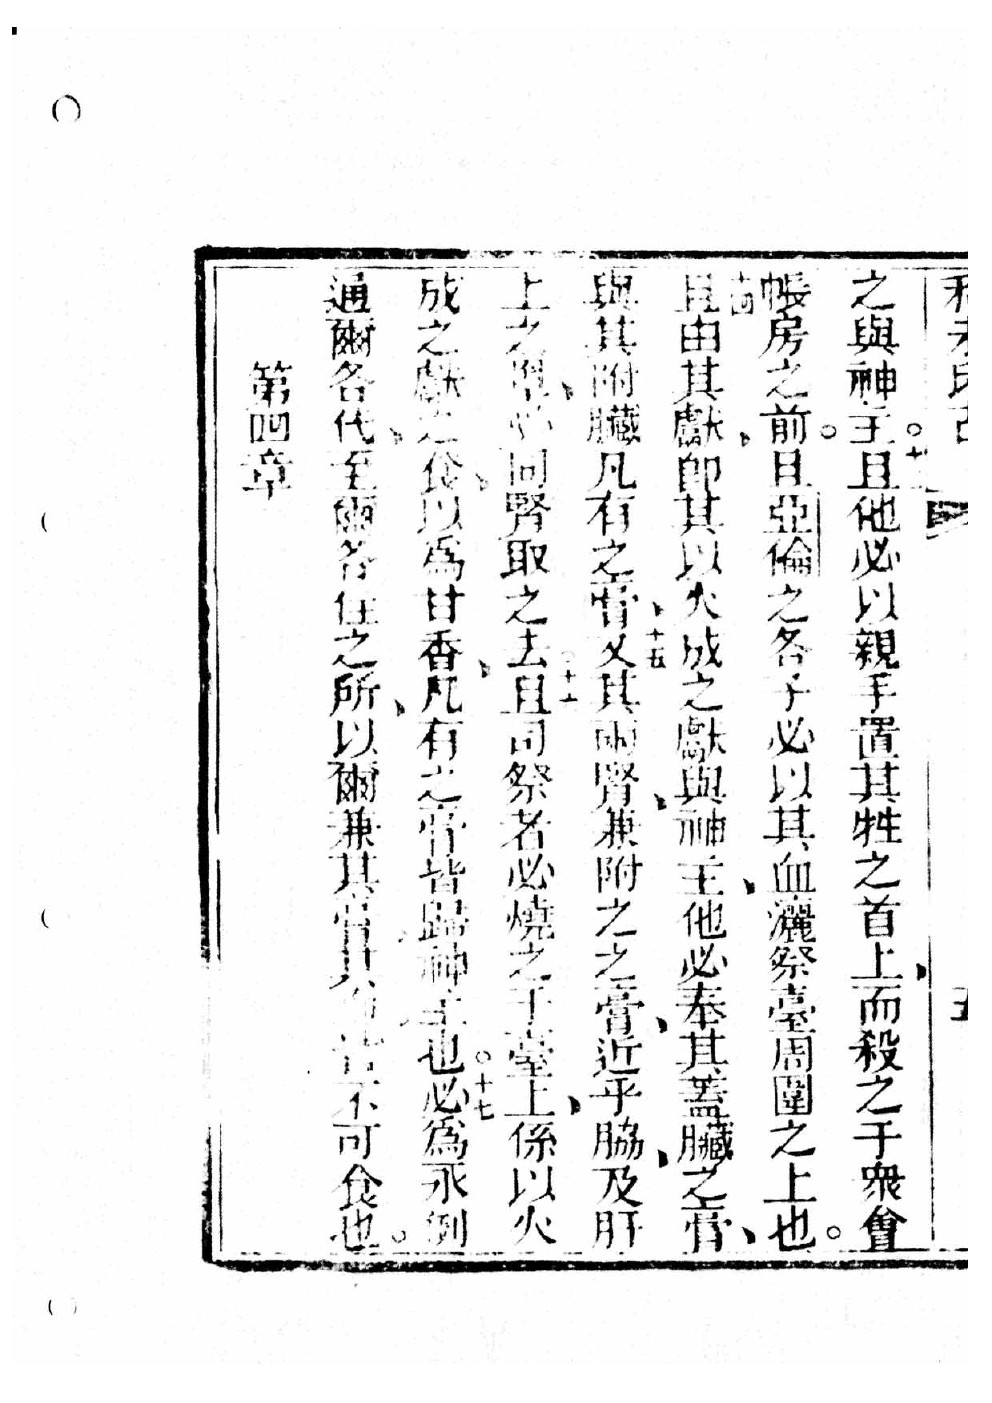 五
之與神主。十三且他必以親手置其牲之首上、而殺之于衆會
帳房之前。且亞倫之各子必以其血灑祭臺周圍之上也。
十四且由其獻、卽其以火成之獻與神主、他必奉其蓋臟之膏、
與其附臟凡有之膏、十五又其兩腎、兼附之之膏、近乎脇、及肝
上之、必同腎取之去。十六且司祭者必燒之于臺上、係以火
成之獻之食、以爲甘香、凡有之膏皆歸神主也。十七必爲永例
通爾各代、至爾各住之所、以爾兼其膏其不可食也。
第四章